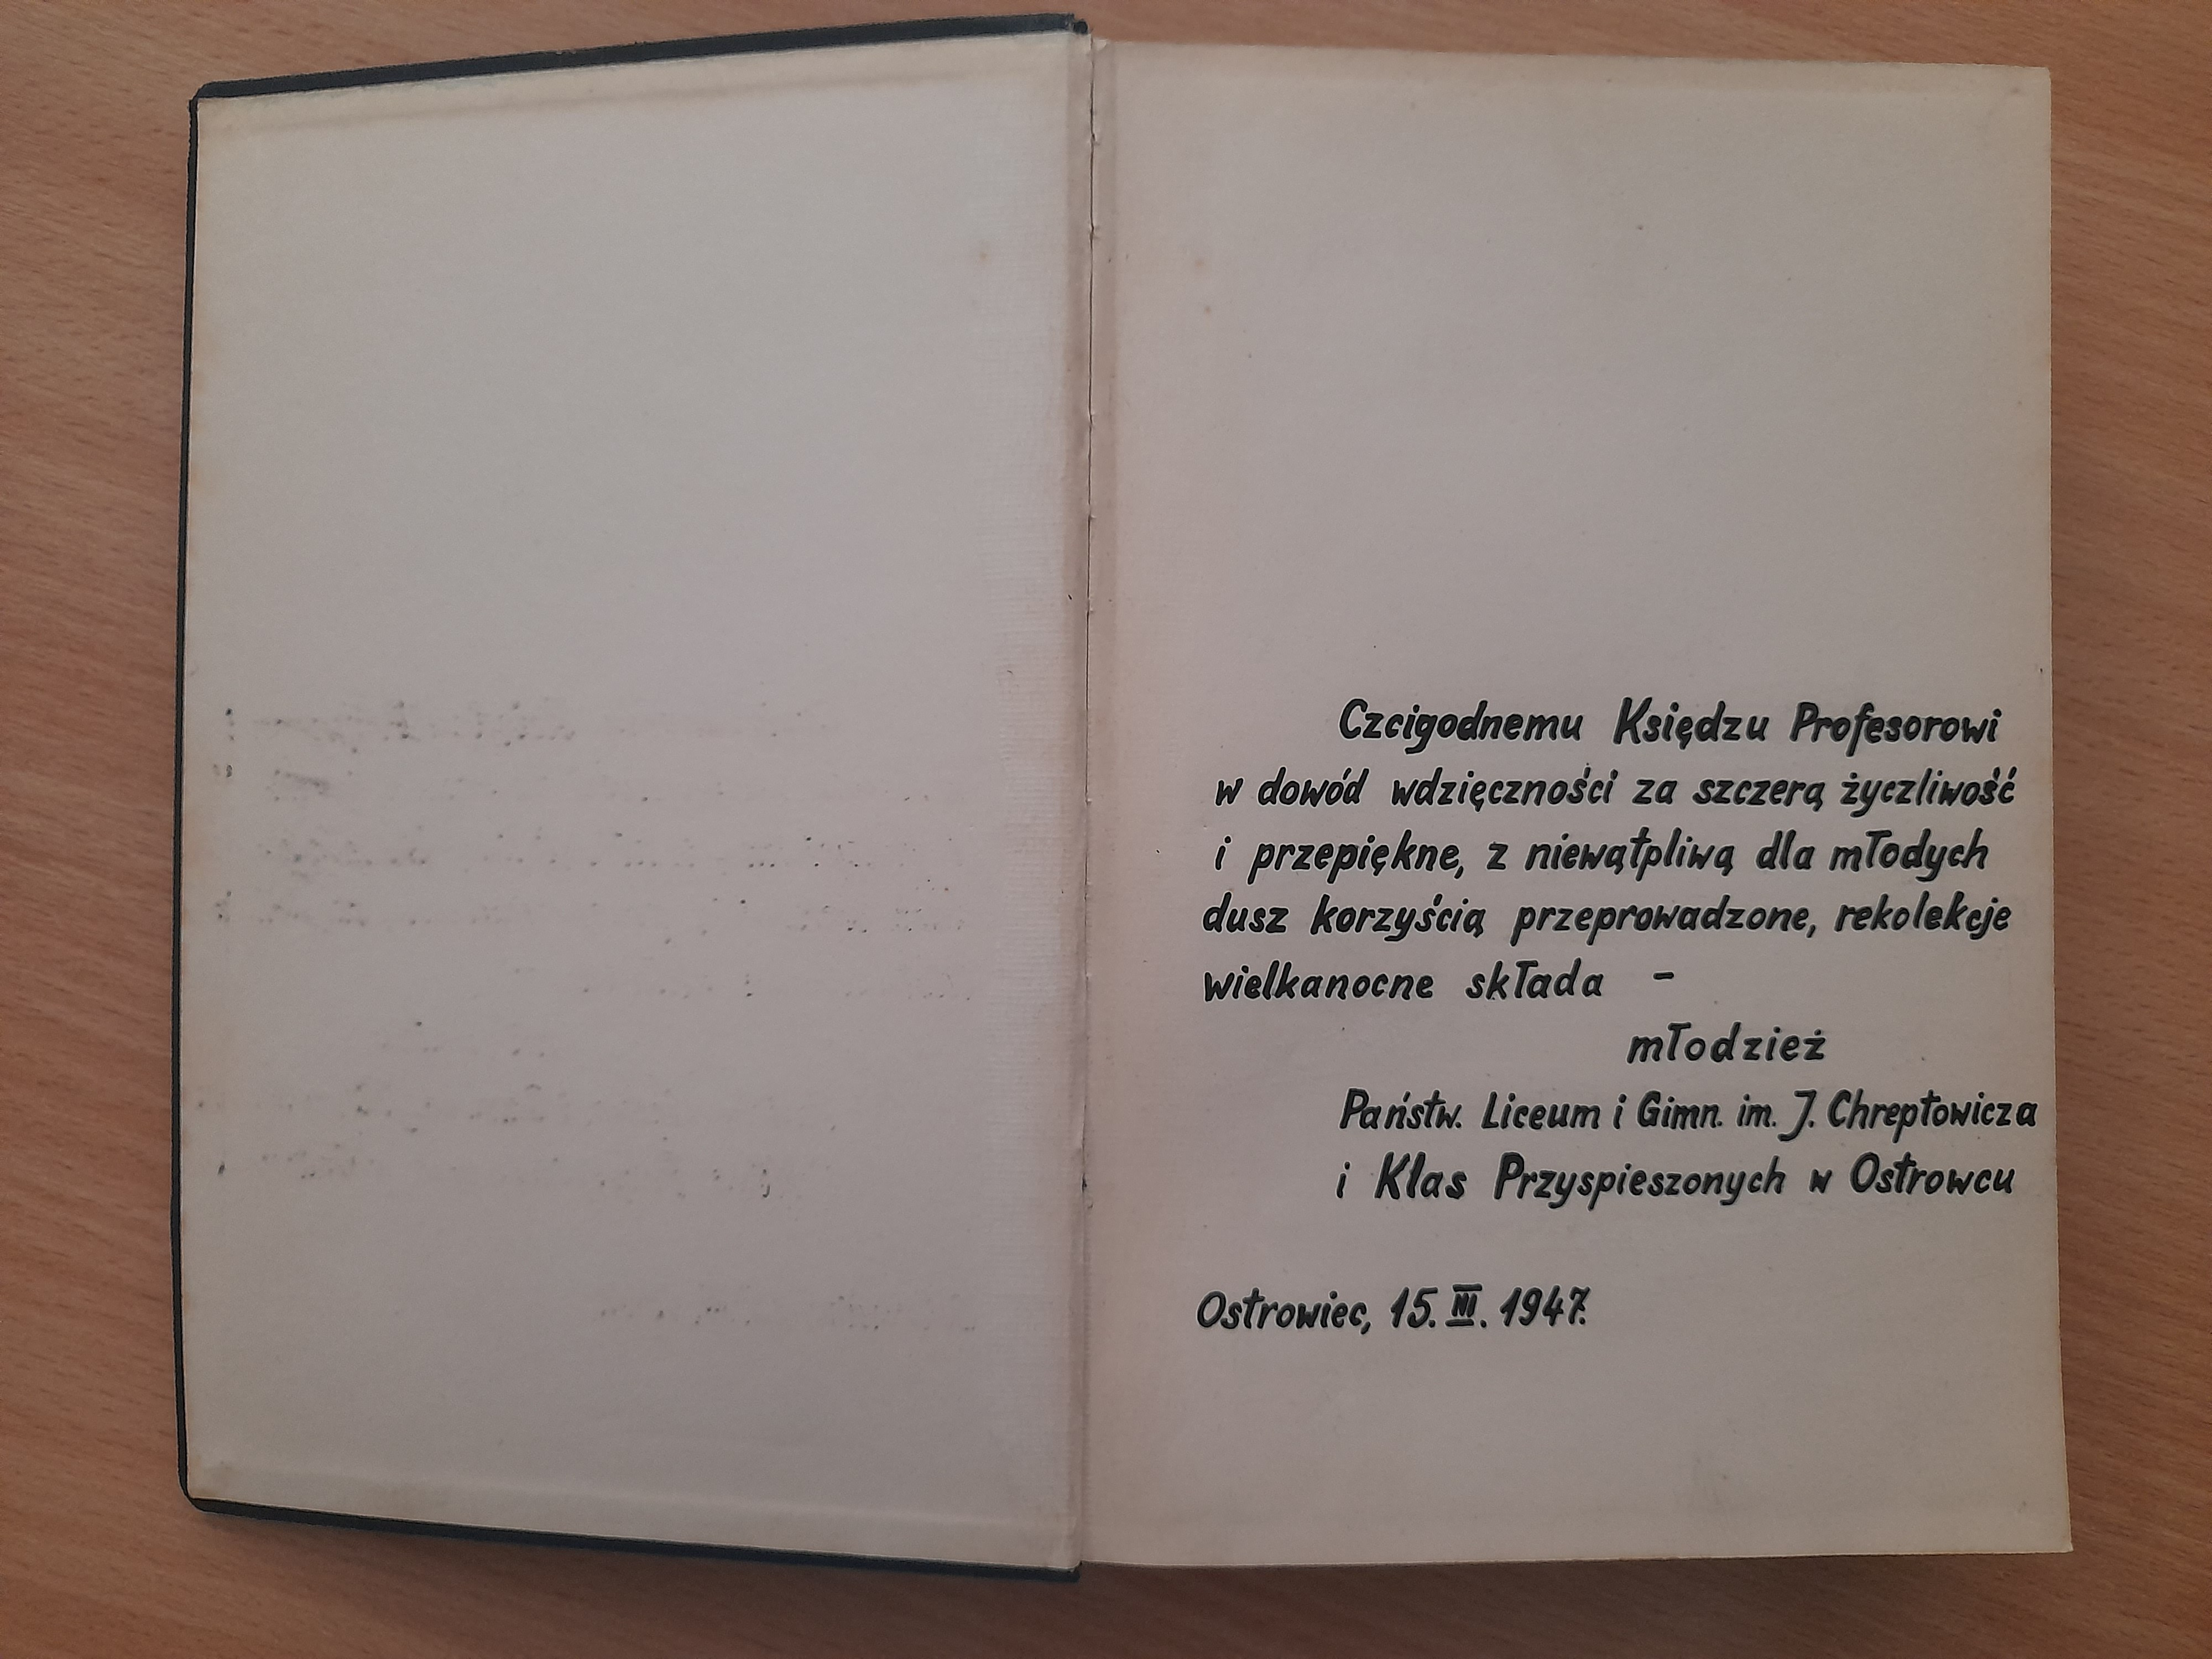 Czcigodnemu Księdzu Profesorowi
w dowód wdzięczności za szczerą życzliwość
i przepiękne, z niewątpliwą dla młodych
dusz korzyścią przeprowadzone, rekolekcje
wielkanocne składa –
młodzież
Państw. Liceum i Gimn. im. J. Chreptowicza
i Klas Przyspieszonych w Ostrowcu
Ostrowiec, 15.III.1947.